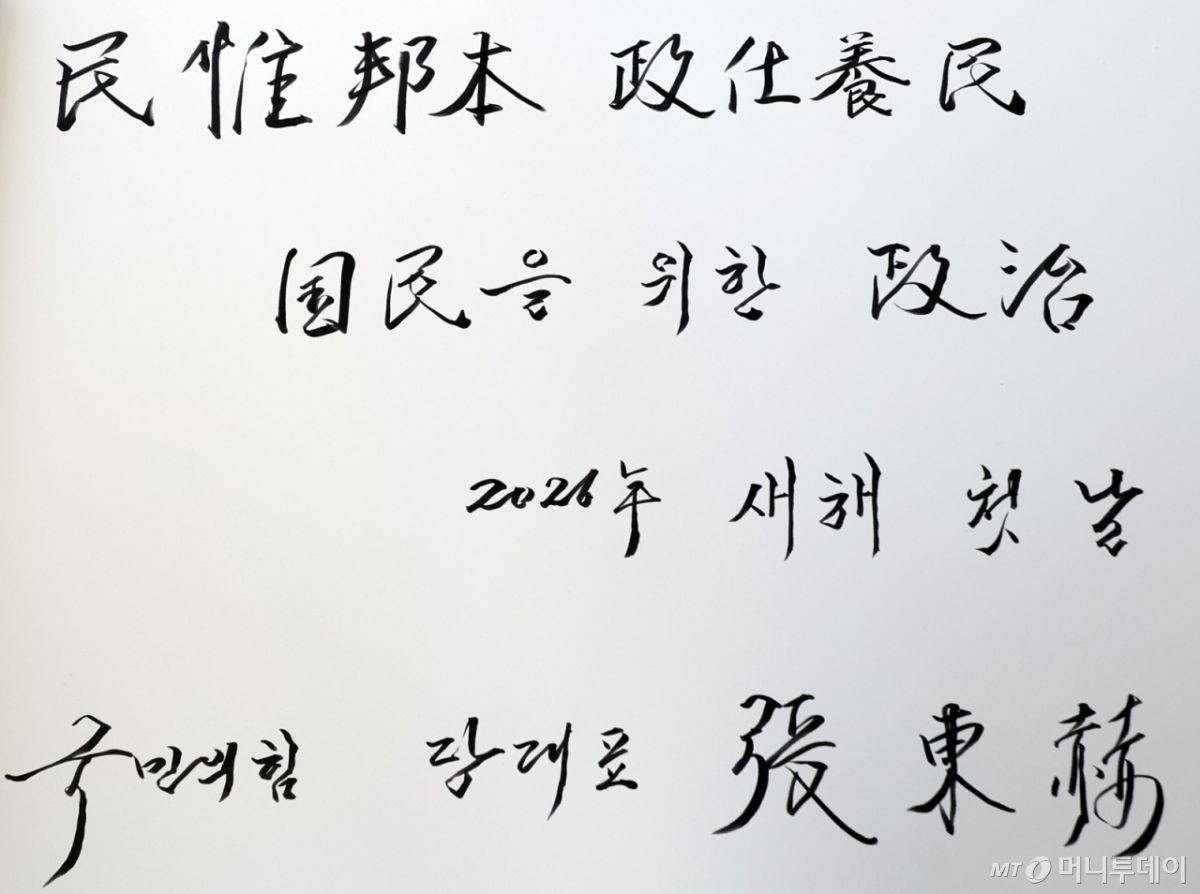 民惟邦本 政仕養民
国民을 위한 政治
2026年 새해 첫날
국민의힘 당대표 張東赫
MT 머니투데이